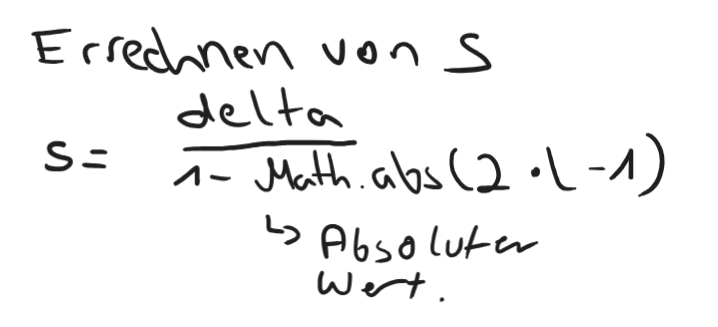 Errechnen von S
delta
s = 1 - Math.abs(2 · l - 1)
↳ Absoluter
Wert.